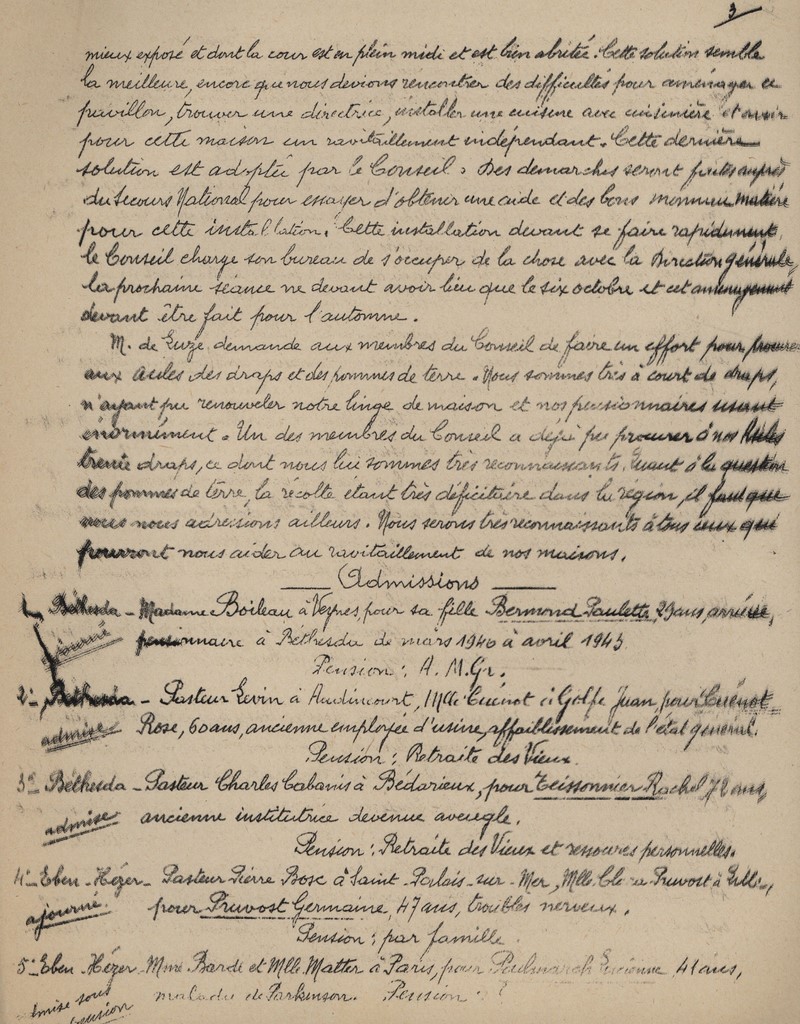 3
mieux exposé et dont la cour est en plein midi et est bien abritée. Cette solution semble
la meilleure, encore que nous devions rencontrer des difficultés pour aménager ce
pavillon, trouver une directrice, installer une cuisine avec cuisinière et avoir
pour cette maison un ravitaillement indépendant. Cette dernière
solution est adoptée par le Conseil. Des démarches seront faites auprès
du Secours National pour essayer d'obtenir une aide et des bons monnaie matière
pour cette installation. Cette installation devant se faire rapidement,
le Conseil charge son bureau de s'occuper de la chose avec la Direction générale,
la prochaine séance ne devant avoir lieu que le six octobre et cet aménagement
devant être fait pour l'automne.
M. de Euze demande aux membres du Conseil de faire un effort pour procurer
aux Asiles des draps et des pommes de terre. Nous sommes très à court de draps,
n'ayant pu renouveler notre linge de maison et nos pensionnaires usant
énormément. Un des membres du Conseil a déjà pu procurer à nos Asiles
trente draps, ce dont nous lui sommes très reconnaissants. Quant à la question
des pommes de terre, la récolte étant très déficitaire dans la région, il faut que
nous nous adressions ailleurs. Nous serons très reconnaissants à tous ceux qui
pourront nous aider au ravitaillement de nos maisons.
Admissions
1- Béthesda - Madame Boileau à Veynes, pour sa fille Bermond Paulette, 23 ans, arriérée,
ajourné pensionnaire à Béthesda de mars 1940 à avril 1943
Pension: A. M. Gr.
2- Béthesda - Pasteur Levin à Audincourt, Mlle Cuénot à Golfe Juan, pour Cuénot
admise Rose, 60 ans, ancienne employée d'usine, affaiblissement de l'état général.
Pension: Retraite des Vieux.
3- Béthesda - Pasteur Charles Cabanis à Bédarieux, pour Teissonnier Rachel, 72 ans,
admise ancienne institutrice devenue aveugle.
Pension: Retraite des Vieux et ressources personnelles.
4- Eben-Hézer - Pasteur Pierre Bosc à Saint-Palais-sur-Mer, Mlle Pruvost à
ajourné. pour Pruvost Germaine, 47 ans, troubles nerveux.
Pension: par famille.
5- Eben-Hézer - Mme Bardé et Mlle Matter à Paris, pour 41 ans,
admise sous maladie de Parkinson. Pension: ?
pension